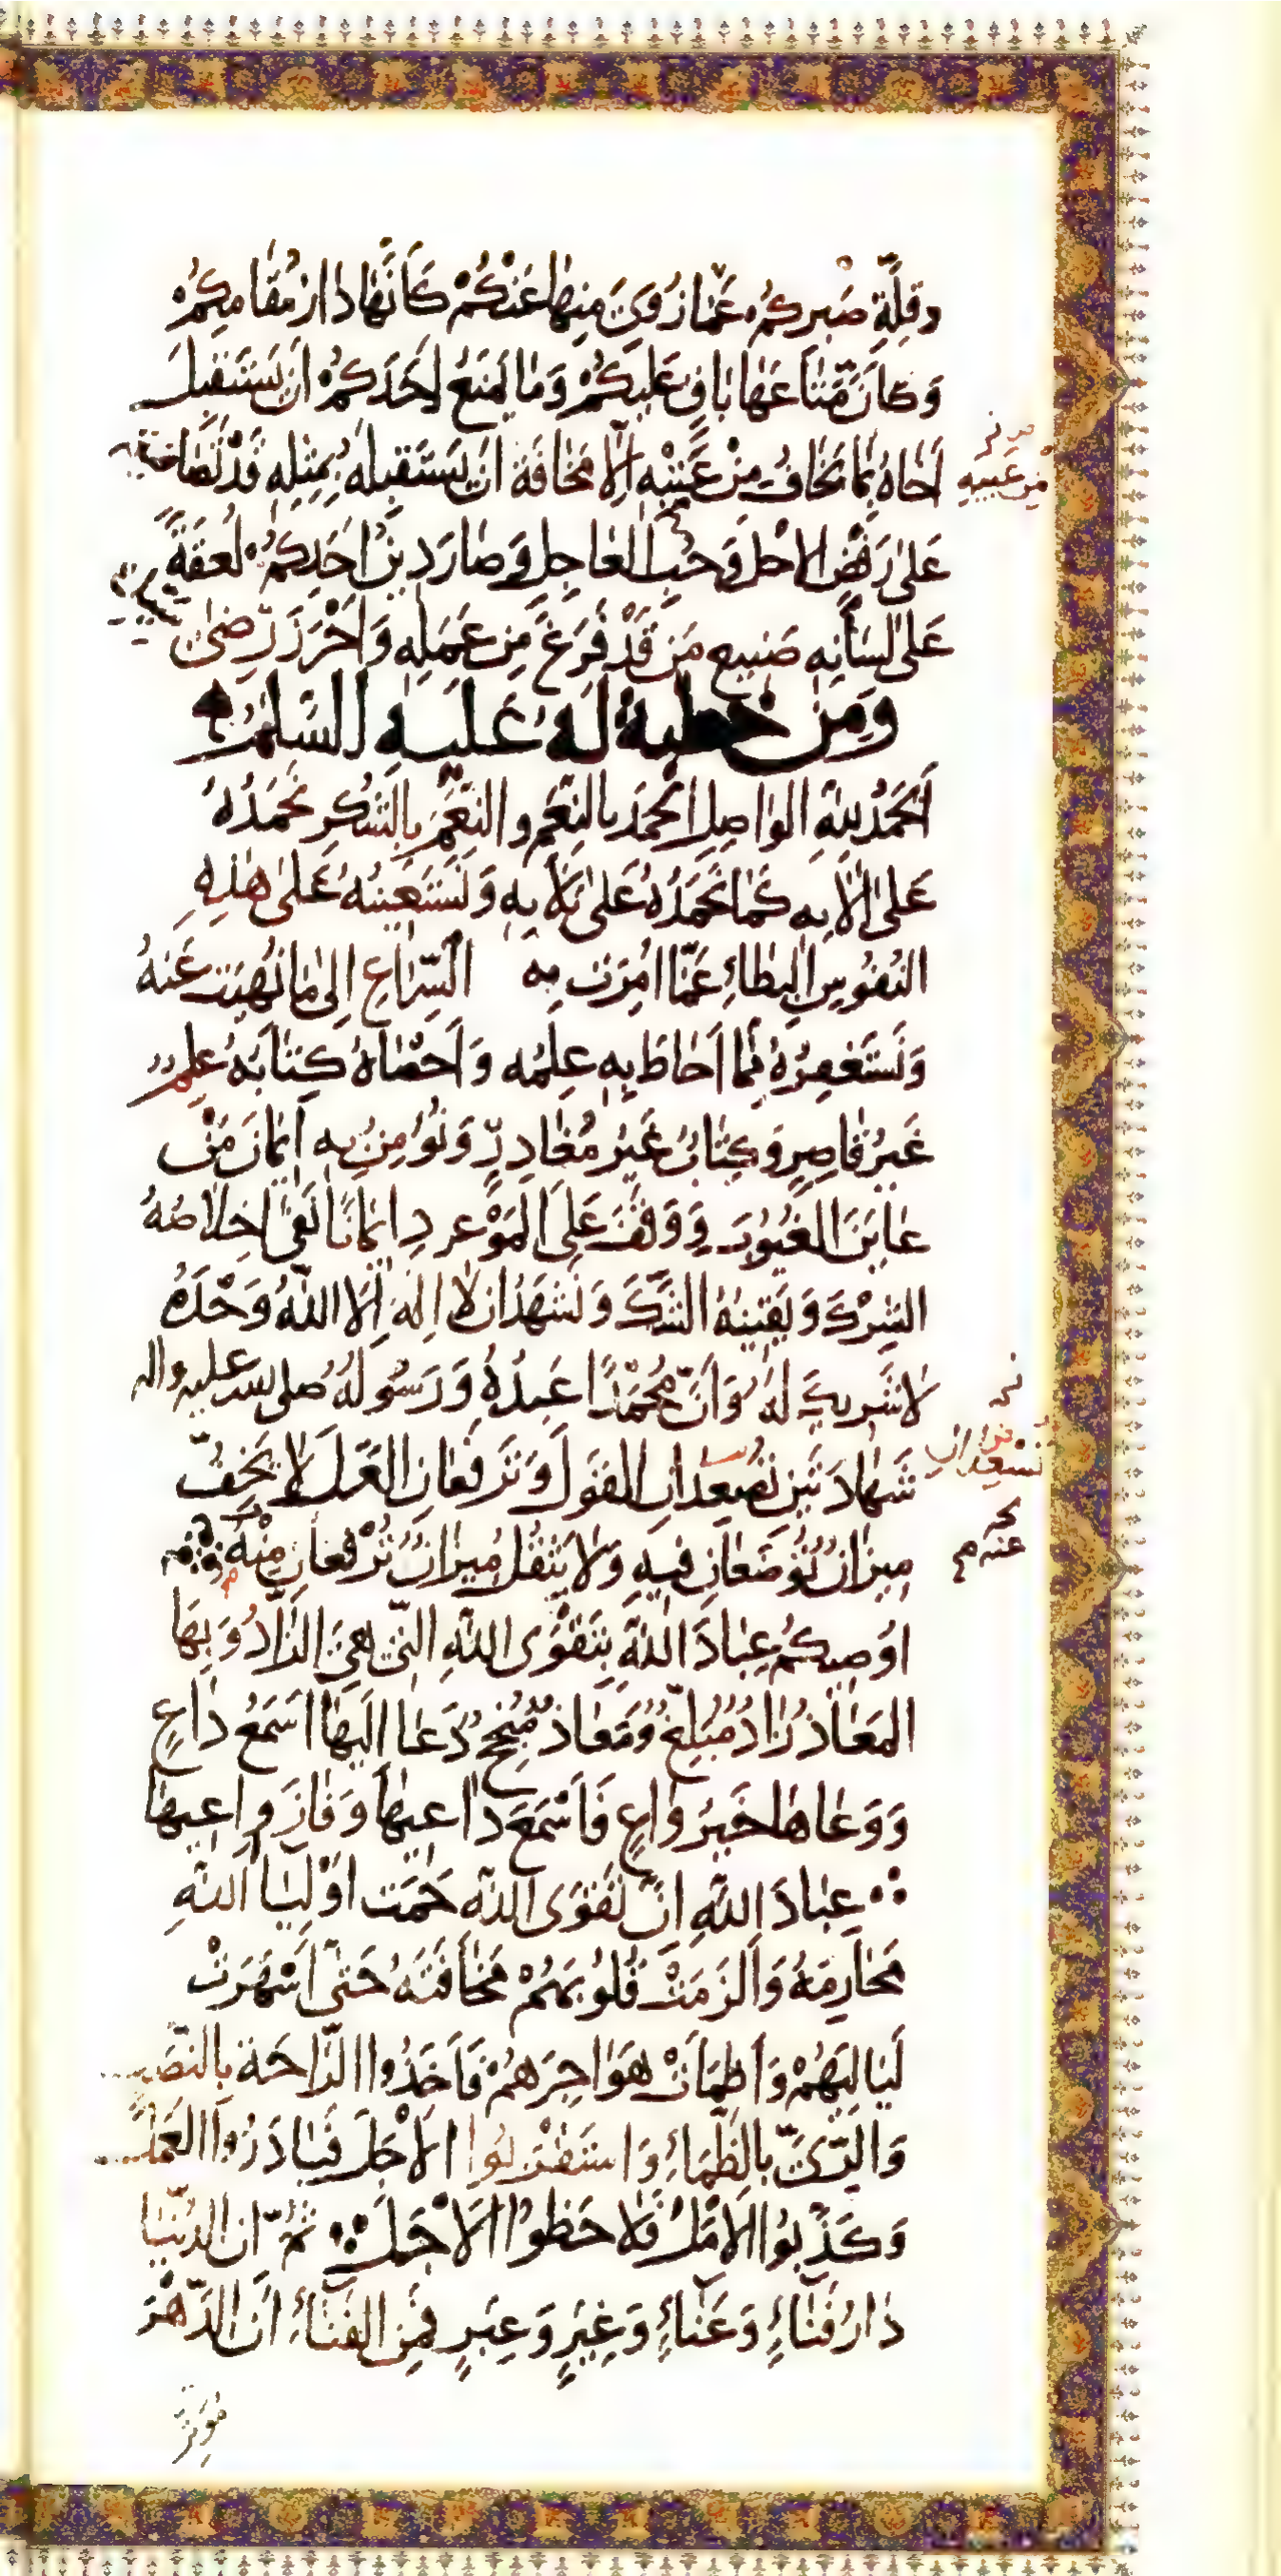 وَقِلَّةِ صَبْرِكُمْ عَمَّا زُوِىَ مِنهَا عَنْكُمْ كَأَنَّهَا دَارُ مُقَامِكُمْ
وَكَانَ مَتَاعَهَا بَاقٍ عَلَيكُمْ وَمَا يَمنَعُ اَحَدَكُمْ اَن يَستَقبِلَ
اَخَاهُ بِمَا يَخَافُ مِنْ عَيْبِهِ اِلَّا مَخَافَة اَن يَستَقبِلَهُ بِمِثلِهِ قَدْ تَصَافَيتُم
مِن عَيبِهِ
عَلَى رَفْضِ الاجِلِ وَحُبِّ العَاجِلِ وَصَارَ دِينُ اَحَدِكُمْ لُعقَةً
عَلَى لِسَانِهِ صَنِيعَ مَن قَدْ فَرَغَ مِن عَمَلِهِ وَاَحْرَزَ رِضَى
وَمِن خُطبة لَهُ عَليهِ السَّلَمُ
اَلحَمْدُ للّهِ الوَاصِلِ الحَمدَ بِالنِّعَمِ والنِّعَمَ بِالشُّكرِ نَحمَدُهُ
عَلَى الَائِهِ كَمَا نَحمَدُهُ عَلَى بَلَائِهِ وَنَستَعِينُهُ عَلَى هَذِهِ
النُفُوسِ البِطَاءِ عَمَّا اُمِرَت بِهِ السِّرَاعِ اِلَى مَا نُهِيَت عَنهُ
وَنَستَغفِرُهُ مِمَّا اَحَاطَ بِهِ عِلمُه وَاَحصَاهُ كِتَابُهُ عِلم
غَيرُ قَاصِرٍ وَكِتَابٌ غَيرُ مُغَادِرٍ وَنُؤمِنُ بِهِ اِيمَانَ مَنْ
عَايَنَ الغُيُوبَ وَوَقَفَ عَلَى المَوْعودِ اِيمَانًا نَفَى اِخلَاصُهُ
الشِركَ وَيَقِينُهُ الشَّكَّ وَنَشهَدُ ان لَا اِلَهَ اِلَّا اللّهُ وَحْدَهُ
لَا شَرِيكَ لَهُ وَاَنَّ مُحَمَّدًا عَبدُهُ وَرَسُولُهُ صلى الله عليه واله
شَهَادَتَينِ تُصعِدَانِ القَولَ وَتَرفَعَانِ العَمَلَ لَا يَخِفُّ
تُسْعِدَانِ
مِيزَانٌ تُوضَعَانِ فِيهِ وَلَا يَثقُلُ مِيزَانٌ تُرْفَعَانِ مِنْهُ
عنه م
اوُصِيكُم عِبَادَ اللّهِ بِتَقْوَى اللّهِ الَّتِي هِيَ الزَّادُ وَبِهَا
المَعَاذُ زَادٌ مُبلِغٌ وَمَعَاذٌ مُنجِحٌ دَعَا اِلَيهَا اَسمَعُ دَاعٍ
وَوَعَاهَا خَيرُ وَاعٍ فَاَسْمَعَ دَاعِيهَا وَفَازَ وَاعِيهَا
عِبَادَ اللّهِ اِنَّ تَقوَى اللّه حَمَت اَوْلِيَاءَ اللّهِ
مَحَارِمَهُ وَاَلزَمَتْ قُلُوبَهُمْ مَخَافَتَهُ حَتَّى اَسهَرَتْ
لَيَالِيَهُمْ وَاَظمَاَتْ هَوَاجِرَهُمْ فَاَخَذُوا الرَّاحَة بِالنَّصَبِ
وَالرِّىَّ بِالظَّمَاءِ وَاستَقْرَبُوا الاَجَلَ فَبَادَرُوا العَمَلَ
وَكَذَّبُوا الاَمَلَ فَلَاحَظُوا الاَجَلَ ثُمَّ اِنَّ الدُّنيَا
دَارُ فَنَاءٍ وَعَنَاءٍ وَغِيَرٍ وَعِبَرٍ فَمِنَ الفَنَاءِ اَنَّ الدَّهْرَ
مُوتِرٌ